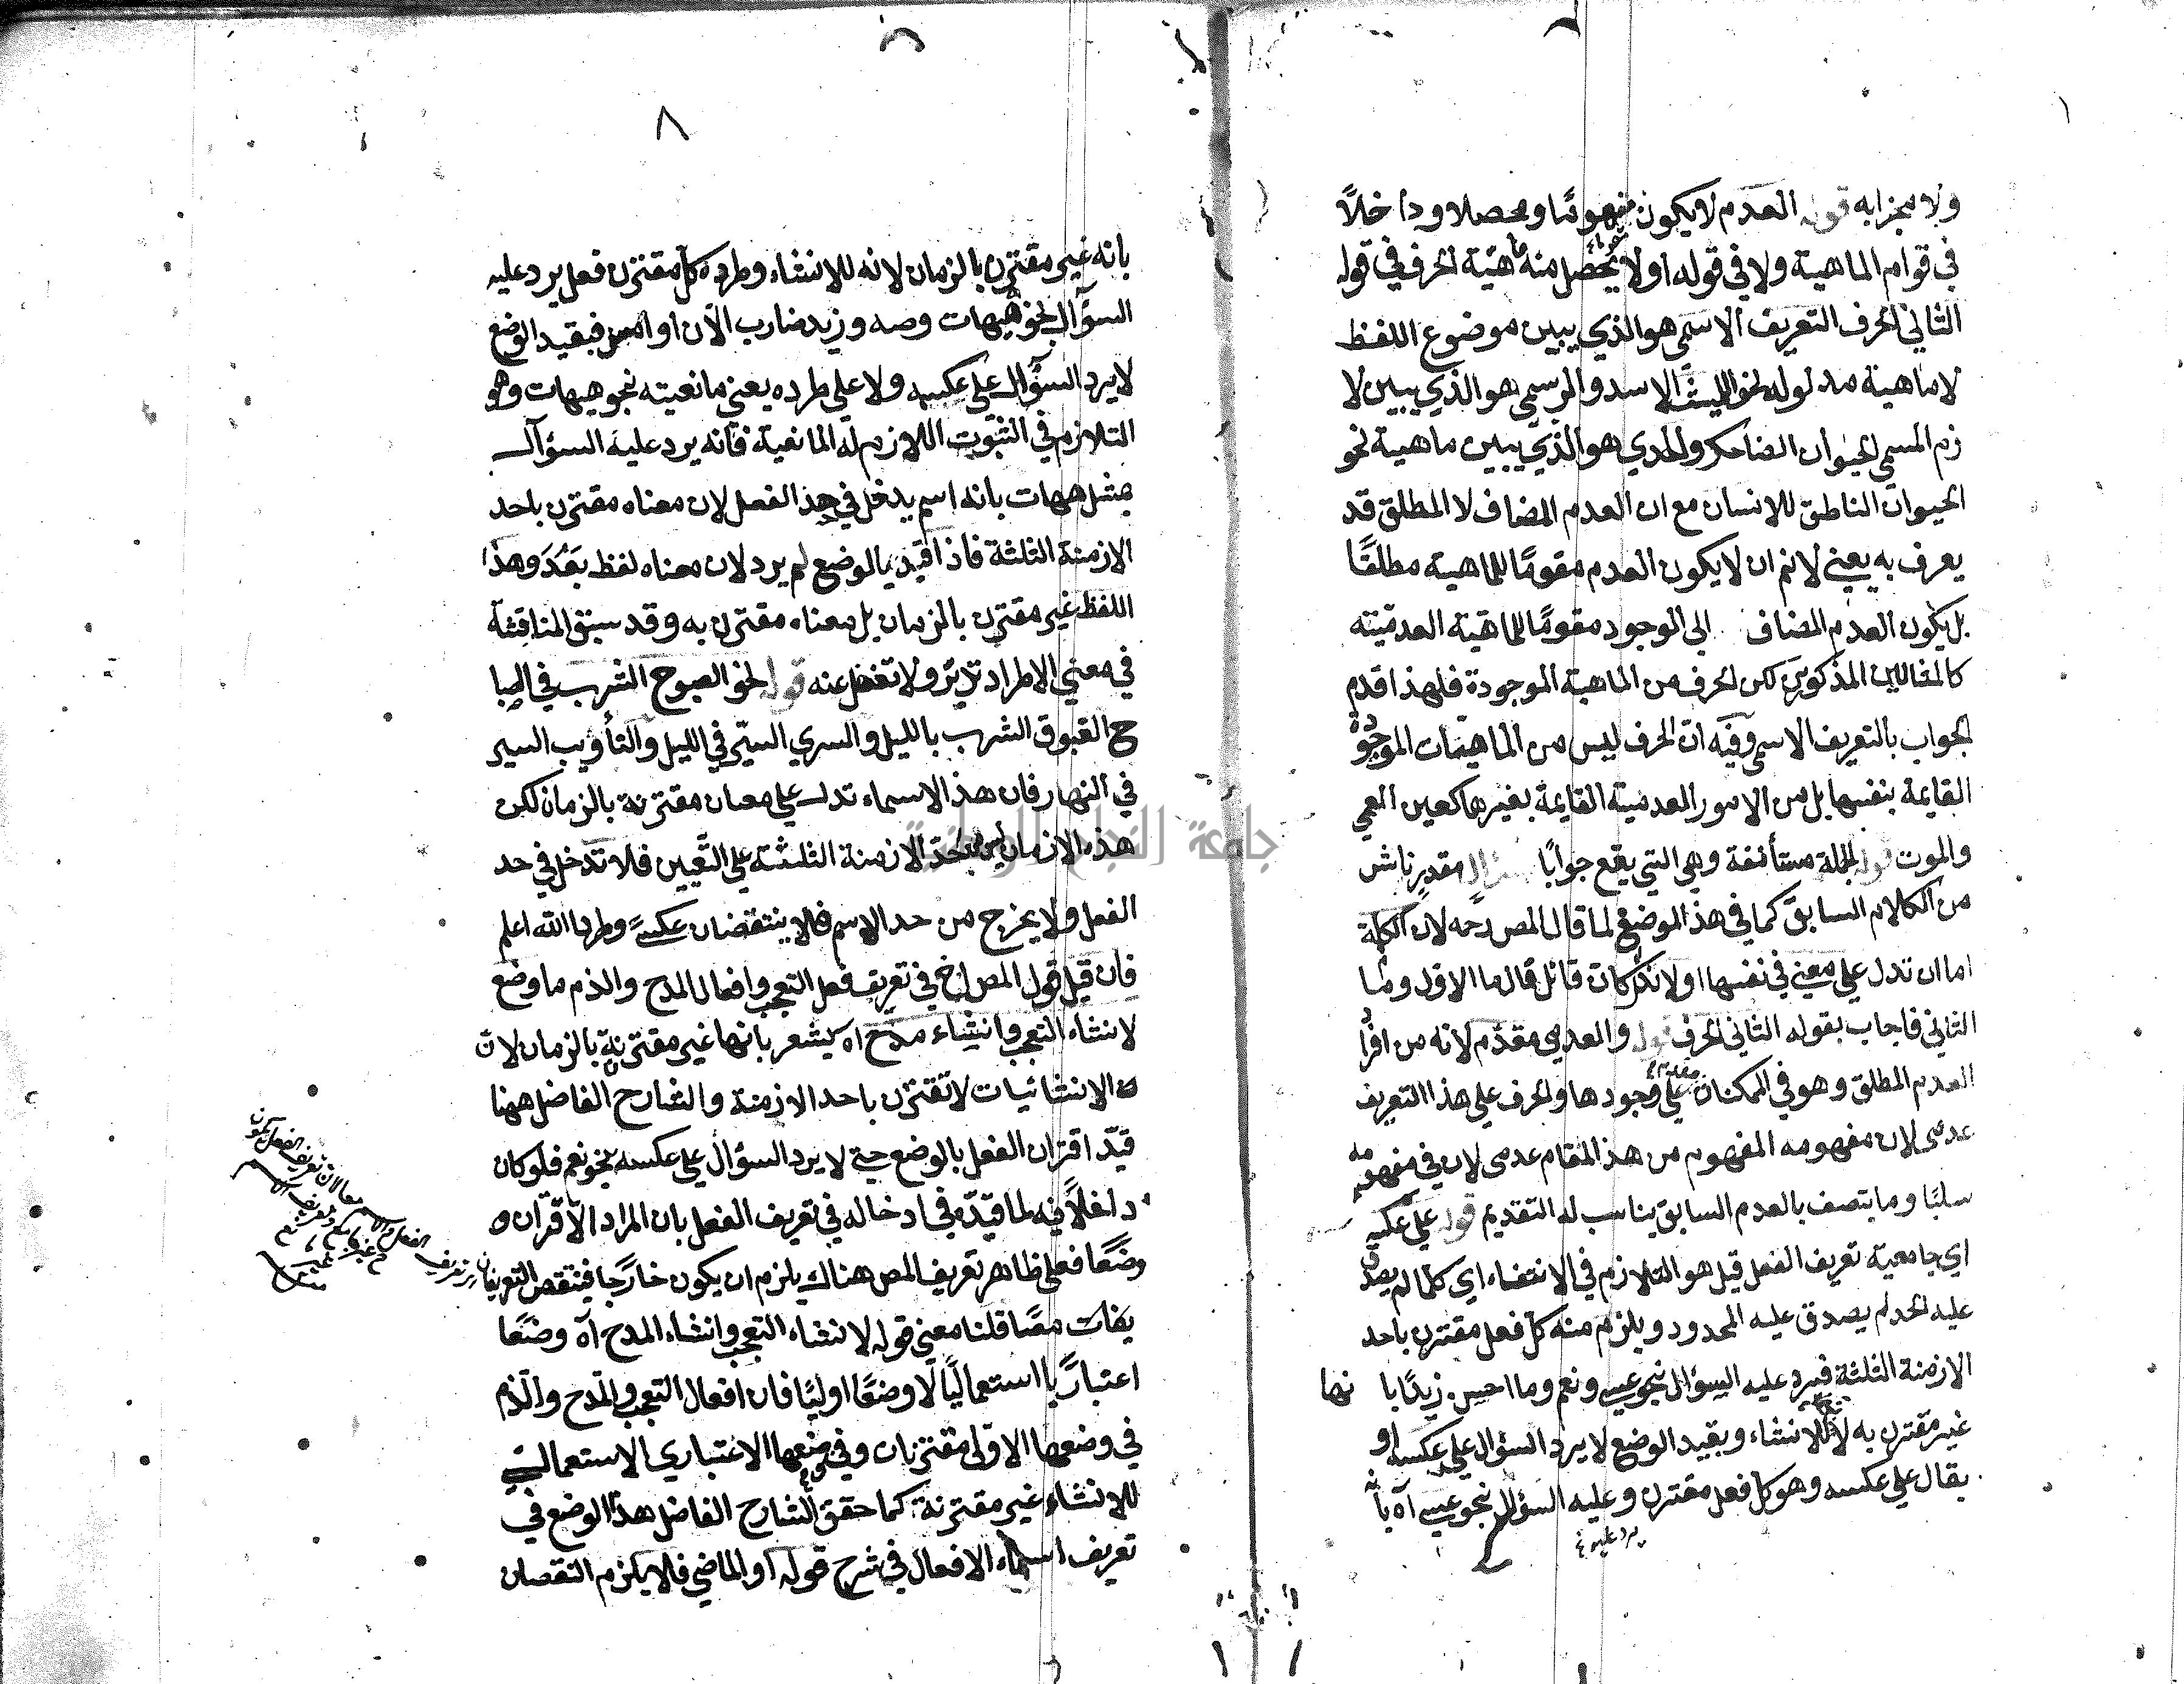 ولا مجزابه قوله العدم لا يكون مفهوما ومحصلا وداخلاً
في قوام الماهية ولا في قوله اولا يحصل منه ماهية الحرف في قوله
الثاني الحرف التعريف الاسمي هو الذي يبين موضوع اللفظ
لا ماهية مدلوله نحو الليث الاسد والرسمي هو الذي يبين لا
زم المسمي الحيوان الضاحك والحدي هو الذي يبين ماهية نحو
الحيوان الناطق للانسان مع ان العدم المضاف لا المطلق قد
يعرف به يعني لا نم ان لا يكون العدم مقومًا للماهية مطلقًا
بل يكون العدم المضاف الي الوجود مقومًا للماهية العدميته
كالمثالين المذكورين لكن الحرف من الماهية الموجودة فلهذا قدم
الجواب بالتعريف الاسمي وفيه ان الحرف ليس من الماهيات الموجودة
القايمة بنفسها بل من الامور العدمية القايمة بغيرها كعين العمي
والموت قوله الجملة مستأنفة وهي التي يقع جوابًا سؤال مقدر ناش
من الكلام السابق كما في هذا الموضع لما قال المص رحمه لان الكلمة
اما ان تدل علي معني في نفسها اولا تدل كان قائل قال ما الاول وما
الثاني فاجاب بقوله الثاني الحرف قوله والعدمي مقدم لانه من افرا
العدم المطلق وهو في الممكنات مقدم علي وجودها والحرف علي هذا التعريف
عدمي لان مفهومه المفهوم من هذا المقام عدمي لان في مفهومه
سلبًا وما يتصف بالعدم السابق يناسب له التقديم قوله علي عكسه
اي جامعية تعريف الفعل قيل هو التلازم في الانتفاء اي كلما لم يصدق
عليه الحد لم يصدق عليه المحدود ويلزم منه كل فعل مقترن باحد
الازمنة الثلثة فيرد عليه السؤال نحو عسي ونعم وما احسن زيدًا با نها
غير مقترن به لانها للانشاء وبقيد الوضع لا يرد السؤال علي عكسه او
يقال علي عكسه وهو كل فعل مقترن وعليه السؤال نحو عسي آه بأنه
يرد عليه
٨
بانه غير مقترن بالزمان لانه للانشاء وطرده كل مقترن فعل يرد عليه
السؤال نحو هيهات وصه وزيد ضارب الآن او امس فبقيد الوضع
لا يرد السؤال علي عكسه ولا علي طرده يعني مانعيته نحو هيهات وهو
التلازم في الثبوت اللازم له المانعية فانه يرد عليه السؤال
بمثل ههات بانه اسم يدخل في حد الفعل لان معناه مقترن باحد
الازمنة الثلثة فاذا قيد بالوضع لم يرد لان معناه لفظ بَعُدَ وهذا
اللفظ غير مقترن بالزمان بل معناه مقترن به وقد سبق المناقشة
في معني الاطراد تدبّر ولا تغفل عنه قوله نحو الصبوح الشرب في الصبا
ح الغبوق الشرب بالليل والسري السير في الليل والتأويب السير
في النهار فان هذ الاسماء تدل علي معان مقترنة بالزمان لكن
هذه الازمان ليس باحد الازمنة الثلثة علي التعيين فلا تدخل في حد
الفعل ولا يخرج من حد الاسم فلا ينتقضان عكسً وطردا الله اعلم
فان قيل قول المص الخ في تعريف فعل التعجب وافعال المدح والذم ما وضع
لانشاء التعجب وانشاء مدح آه يشعر بانها غير مقترنة بالزمان لان
الانشائيات لا تقترن باحد الازمنة والشارح الفاضل ههنا
قيّد اقتران الفعل بالوضع حتي لا يرد السؤال علي عكسه بنحو نعم فلو كان
داخلاً فيه لما قيّده في ادخاله في تعريف الفعل بان المراد الاقتران
وضعًا فعلي ظاهر تعريف المص هناك يلزم ان يكون خارجا فينتقص التعريفان
يفات معًا قلنا معني قوله لانشاء التعجب وانشاء المدح آه وضعًا
اعتباريا استعماليًا لا وضعًا اوليًا فان افعال التعجب والمدح والذم
في وضعها الاولي مقترنان وفي وضعها الاعتباري الاستعمالي
للانشاء غير مقترنة كما حقق الشارح الفاضل هذا الوضع في
تعريف اسماء الافعال في شرح قوله او الماضي فلا يلزم النقصان
جامعة النجاح الوطنية